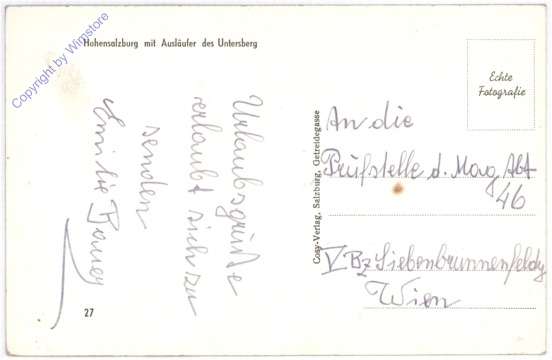 Copyright by Wimstore
Hohensalzburg mit Ausläufer des Untersberg
Urlaubsgrüße
erlaubt sich zu
senden
Emilie Bauer
27
Cosy-Verlag, Salzburg, Getreidegasse
Echte
Fotografie
An die
Prüfstelle d. Mag Abt
46
V Bz Siebenbrunnenfeldg
Wien